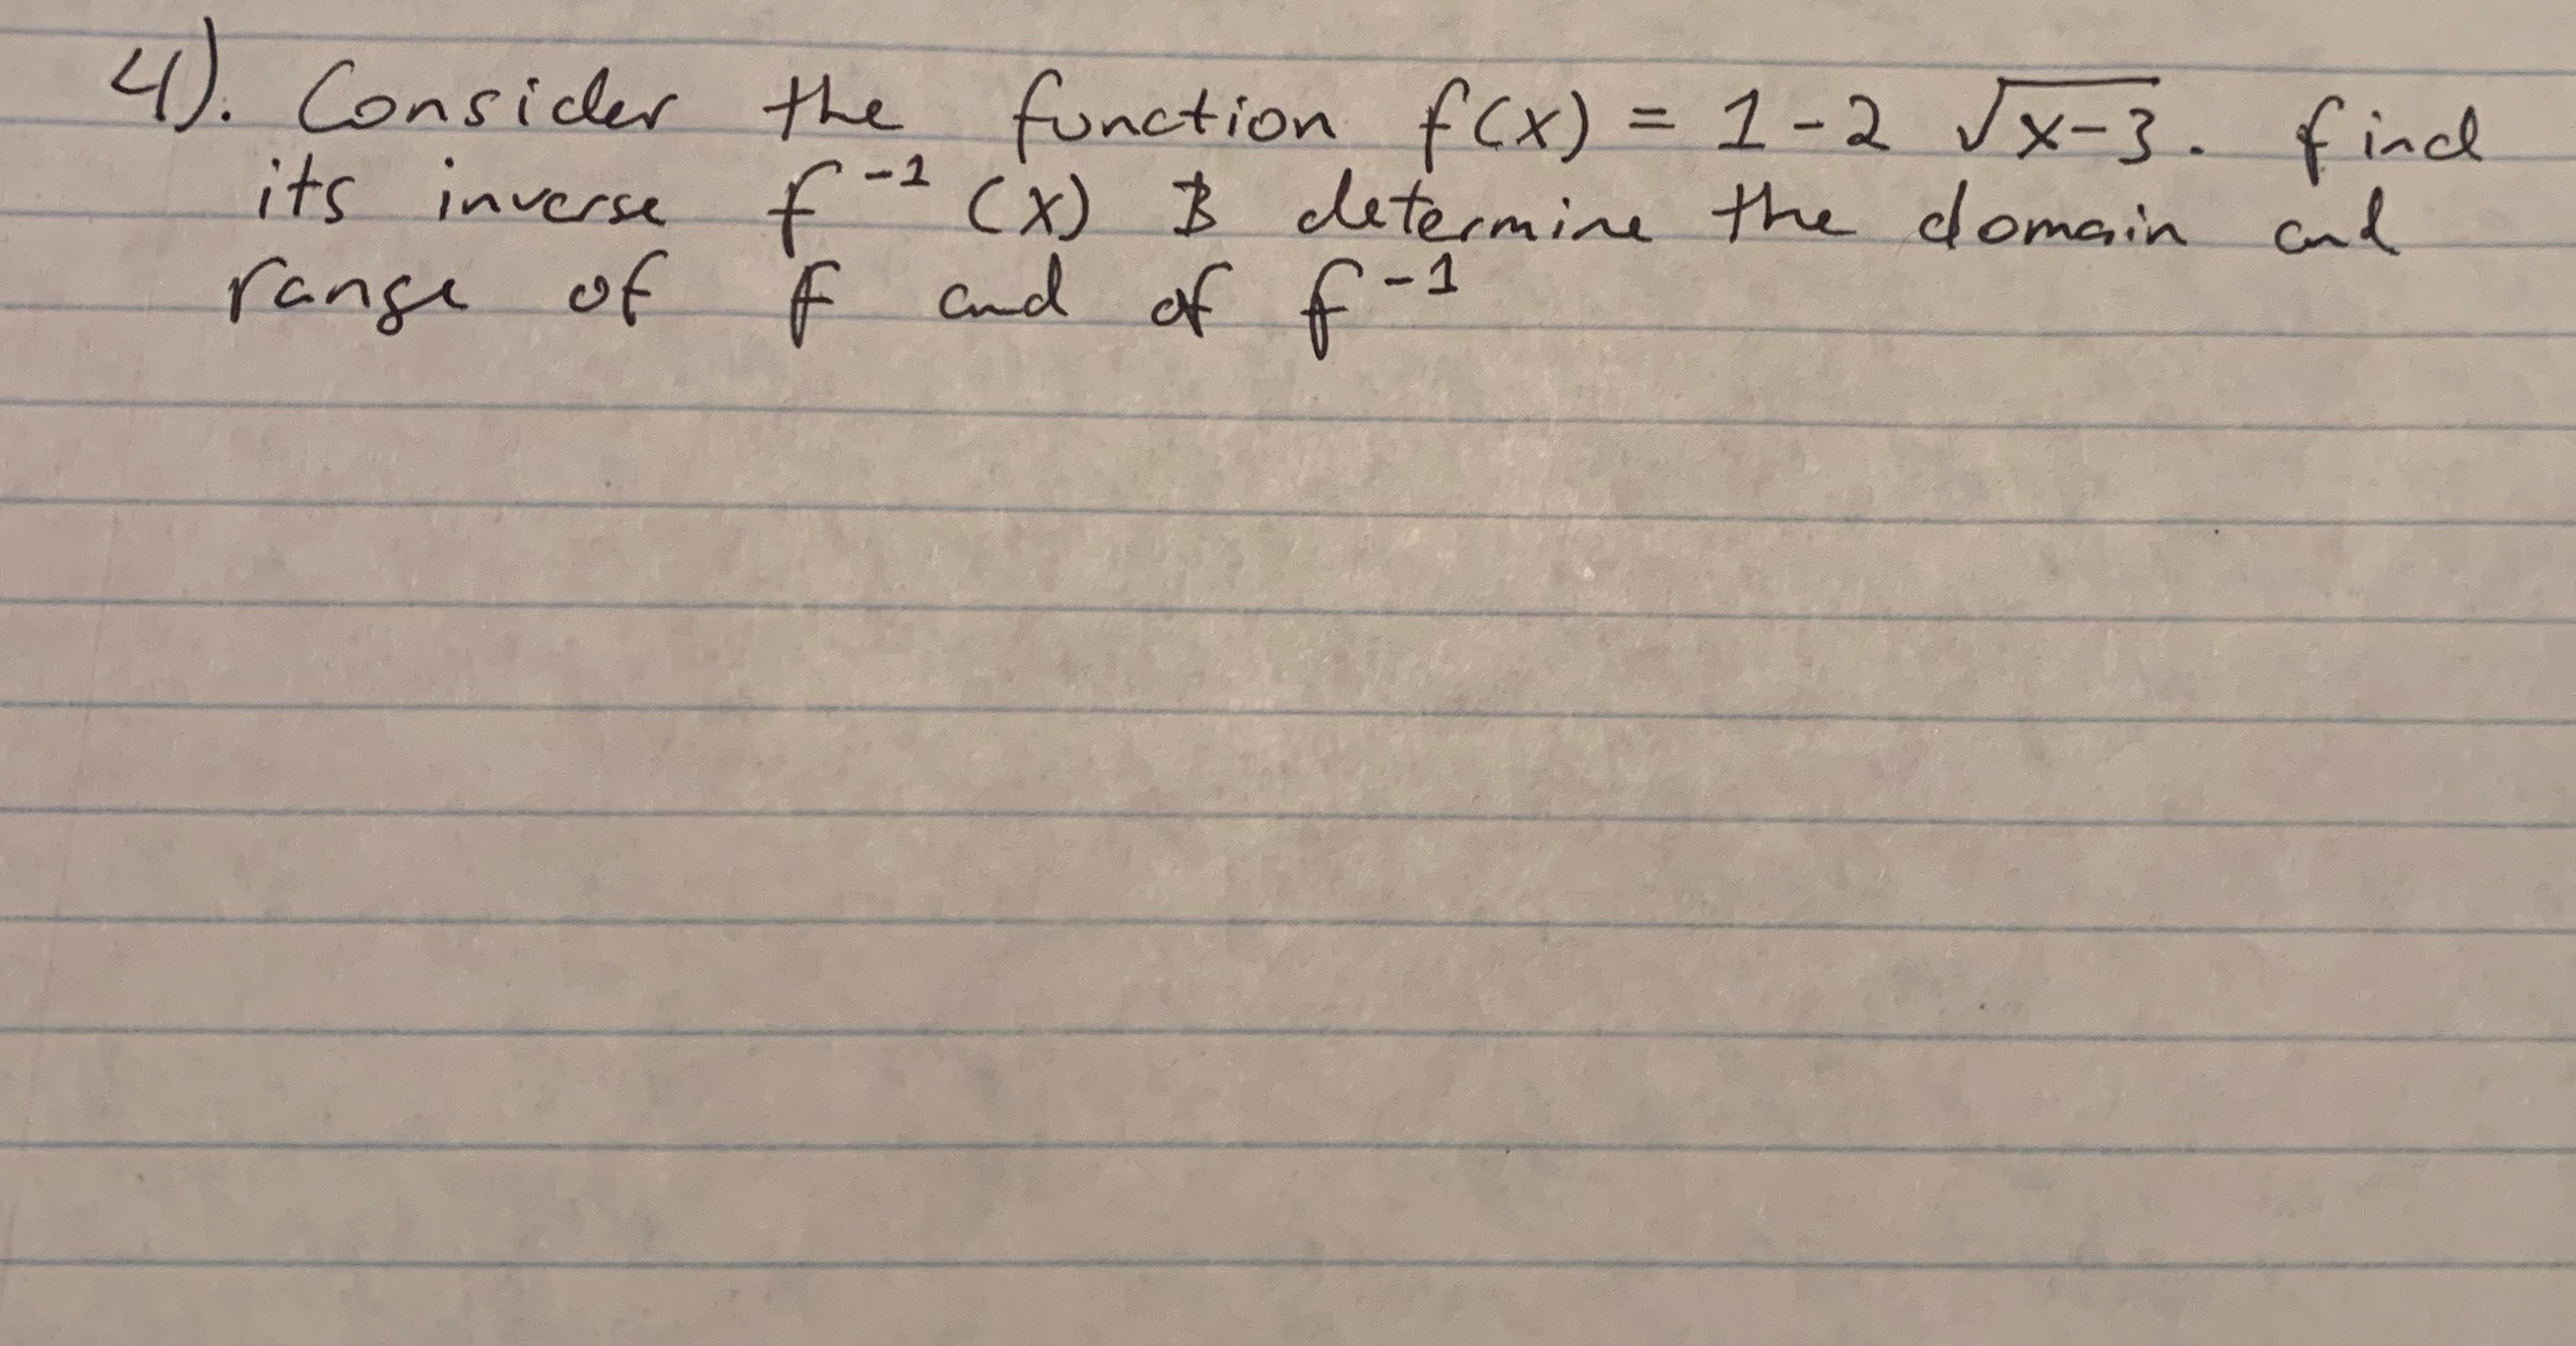 4). Consider the function f(x) = 1-2 √x-3. find
its inverse f⁻¹ (x) & determine the domain and
range of f and of f⁻¹